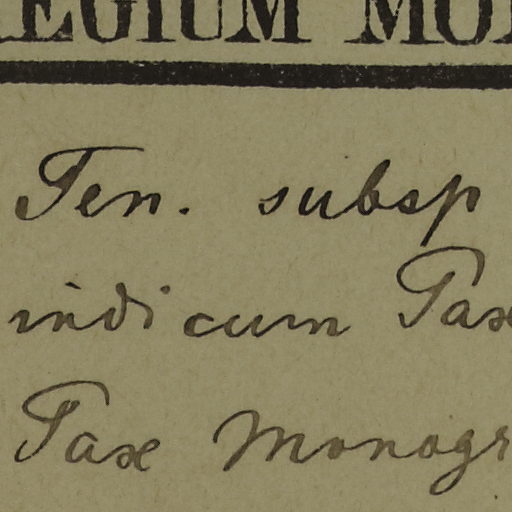 EGIUM MO
Ten. subsp
indicum Pax
Pax Monogr